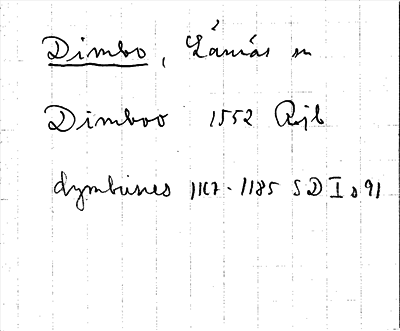 Dimbo, Lånnås sn
Dimboo 1552 Rijb
dymbunes 1167-1185 SD I s 91